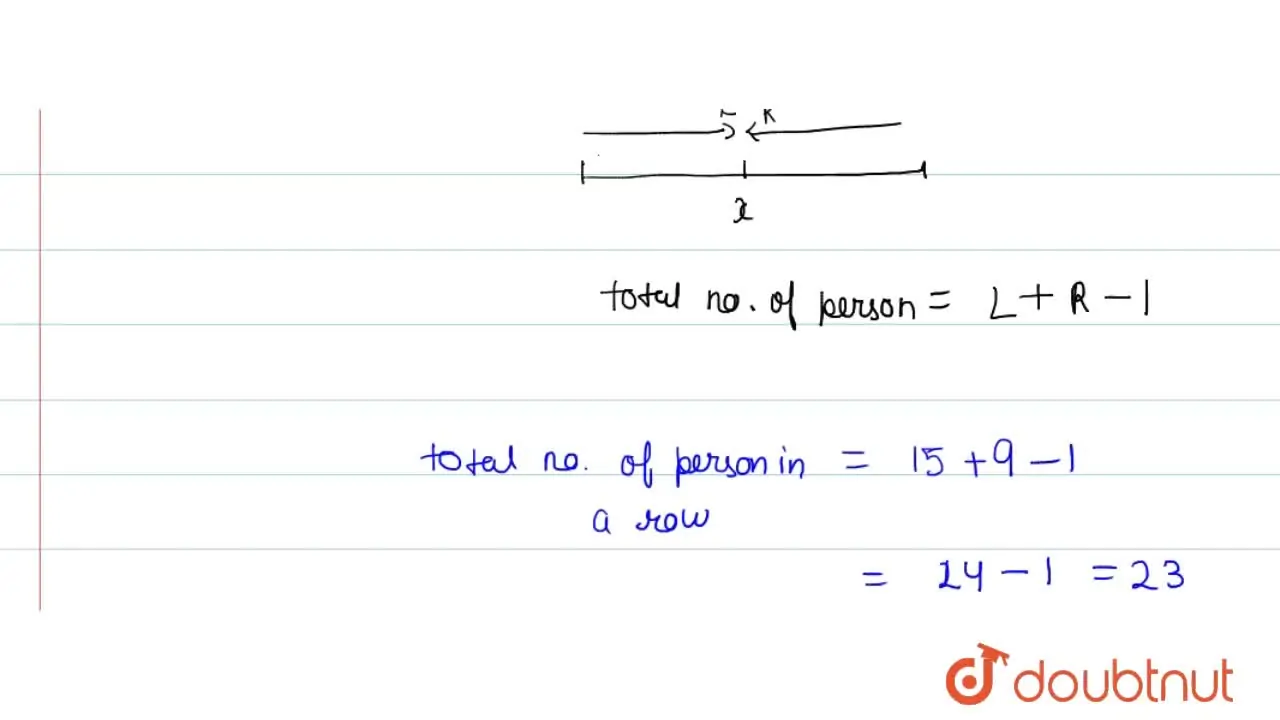 R
x
total no. of person = L + R - 1
total no. of person in = 15 + 9 - 1
a row
= 24 - 1 = 23
doubtnut